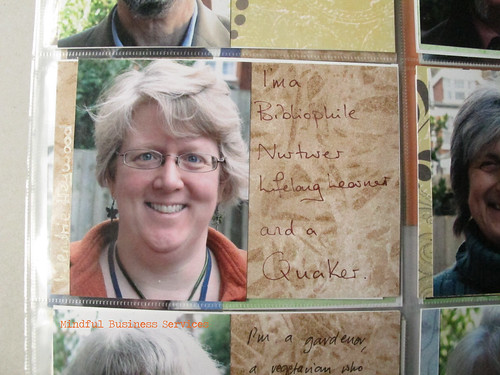 I'm a
Bibliophile
Nurturer
Lifelong Learner
and a
Quaker.
Mindful Business Services
I'm a gardener,
a vegetarian who